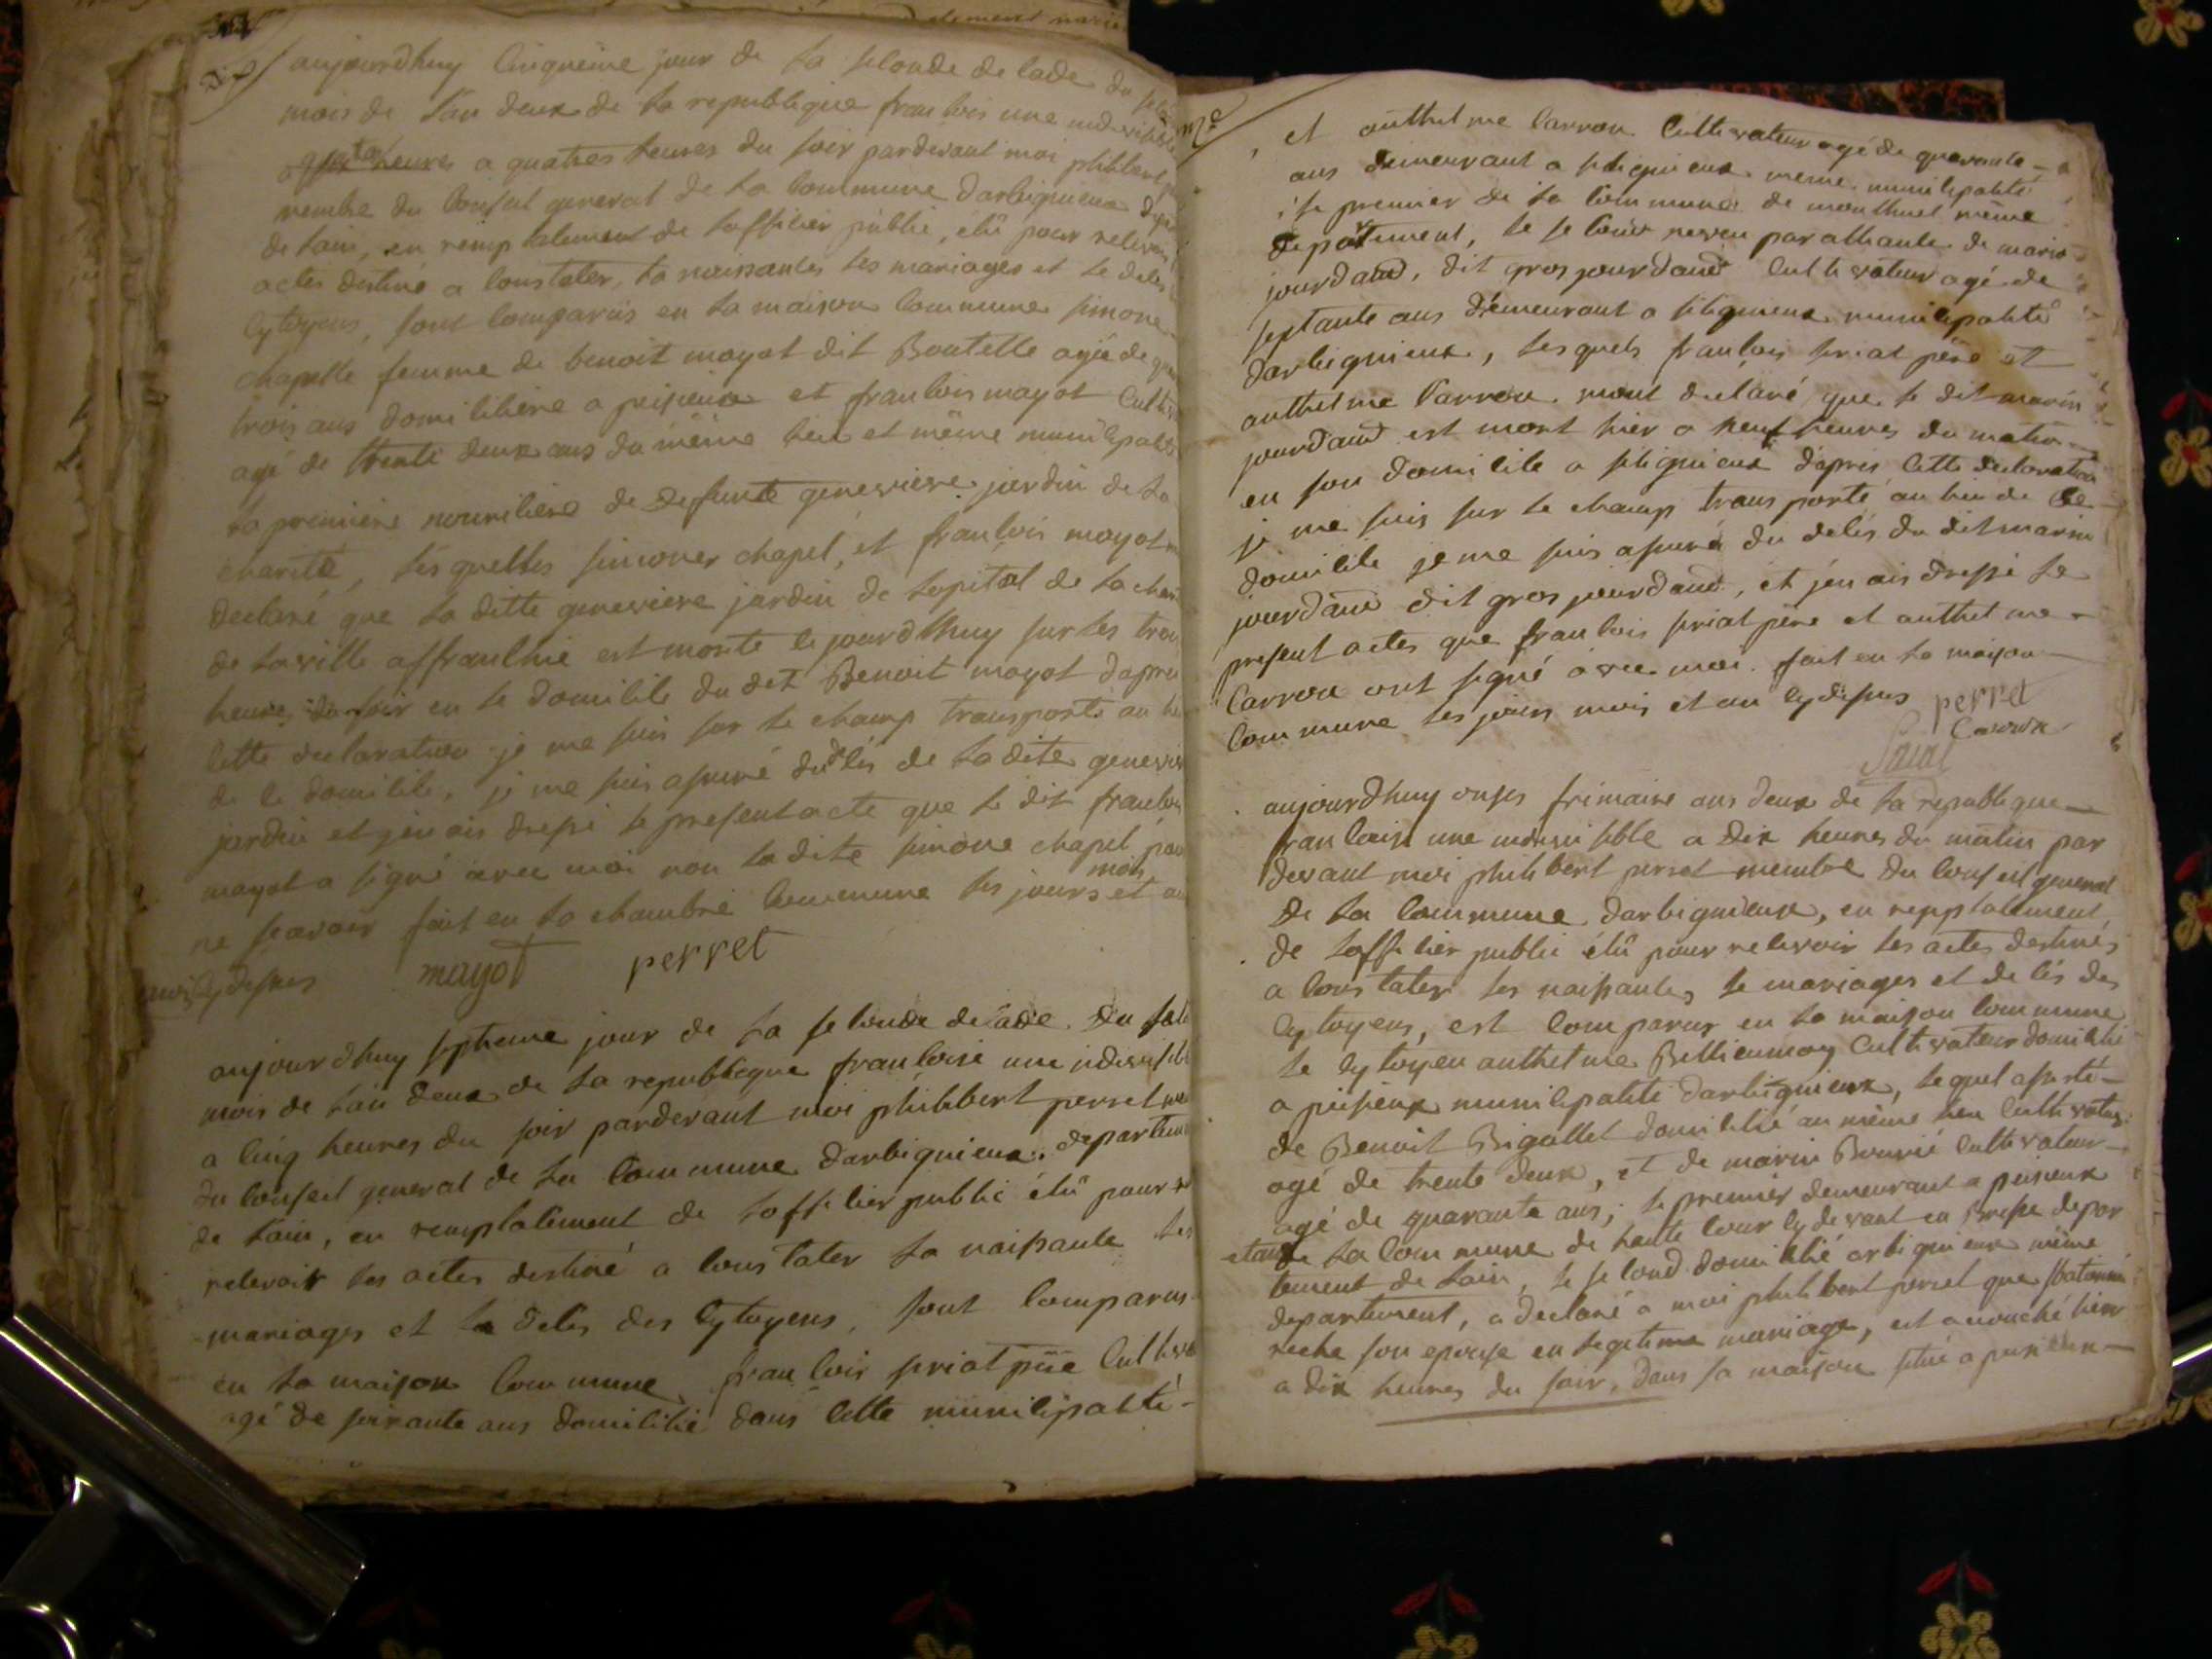 aujourdhuy cinqueme jour de la seconde decade du
mois de l'an deux de la republique francois une indivisible
a quatres heures du soir pardevant moi philibert
membre du conseil general de la commune darbignieux
de lain, en remplacement de lofficier public, élû pour recevoir
actes destiné a constater, la naissances les mariages et le decès
cytoyens, sont comparuës en la maison commune simone
chapelle femme de benoit mayot dit Boutelle agée de
trois ans domiciliere a peisieux et francois mayot
agé de trente deux ans du même lieu et même municipalité
la premiere nouriciere de defunte genevieve jardin de la
charité, lesquelles simoner chapel, et francois mayot
declaré que la ditte genevieve jardin de lopital de la
de la ville affranchie est morte ce jourdhuy sur les trois
heures du soir en le domicile du det Benoit mayot dapres
cette declaration je me suis sur le champ transporté au
de ce domicile, je me suis assuré du dcès de ladite genevieve
jardin et j'en ais dressé le present acte que le dit francois
mayot a signé avec moi non ladite simone chapel pour
ne scavoir fait en la chambre commune les jours mois et an
cy dessus mayot perret
aujourdhuy septieme jour de la seconde decade du
mois de l'an deux de la republique francoise une indivisible
a cinq heures du soir pardevant moi philibert perret
du conseil general de la commune darbignieux, departement
de l'ain, en remplacement de lofficier public élû pour
recevoir les actes destiné a constater la naissance les
mariages et la décès des cytoyens, sont comparus
en la maison commune francois priat père
agé de soixante ans domicilié dans cette municipalité -
, et anthelme Carron cultivateur agé de quarante -
ans demeurant a silignieux meme municipalité
le premier de la commune de monthuel même
département, le second neveu par alliance de marin
jourdand, dit gros jourdand cultivateur agé de
septante ans démeurant a silignieux municipalité
darbignieux, lesquels francois priat père et
anthelme Carron mont declaré que le dit marin
jourdand est mort hier a neuf heures du matin
en son domicile a silignieux dapres cette declaration
je me suis sur le champ transporté au lieu de ce
domicile je me suis assuré du decès du dit marin
jourdand dit gros jourdand, et j'en ais dressé le
present actes que francois priat père et anthelme -
Carron ont signé avec moi. fait en la maison
commune les jours mois et an cy dessus perret
Carron
Priat
aujourdhuy onses frimaire ans deux de la republique -
francaise une indivisible a dix heures du matin par
devant moi philibert perret membre du conseil general
de la commune darbignieux, en repplacement
de lofficier public élû pour recevoir les actes destinés
a constater les naissantes, le mariages et decès des
cytoyens, est comparus en la maison commune
le cytoyen anthelme Belliemmoz cultivateur domicilié
a peisieux municipalité darbignieux, lequel assisté -
de Benoit Bigallet domicilié au même lieu cultivateur
agé de trente deux, et de marin Bourié cultivateur -
agé de quarante ans, le premier demeurant a peisieux
etant de la commune de haute cour cy devant en Bresse depar
tement de lain, le second domicilié arbignieux même
departement, a declaré a moi philibert perret que
reche son epouse en legitime mariage, est acouché hier
a dix heures du soir, dans sa maison situé a peisieux -